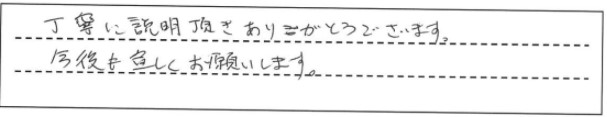 丁寧に説明頂きありがとうございます。
今後も宜しくお願いします。